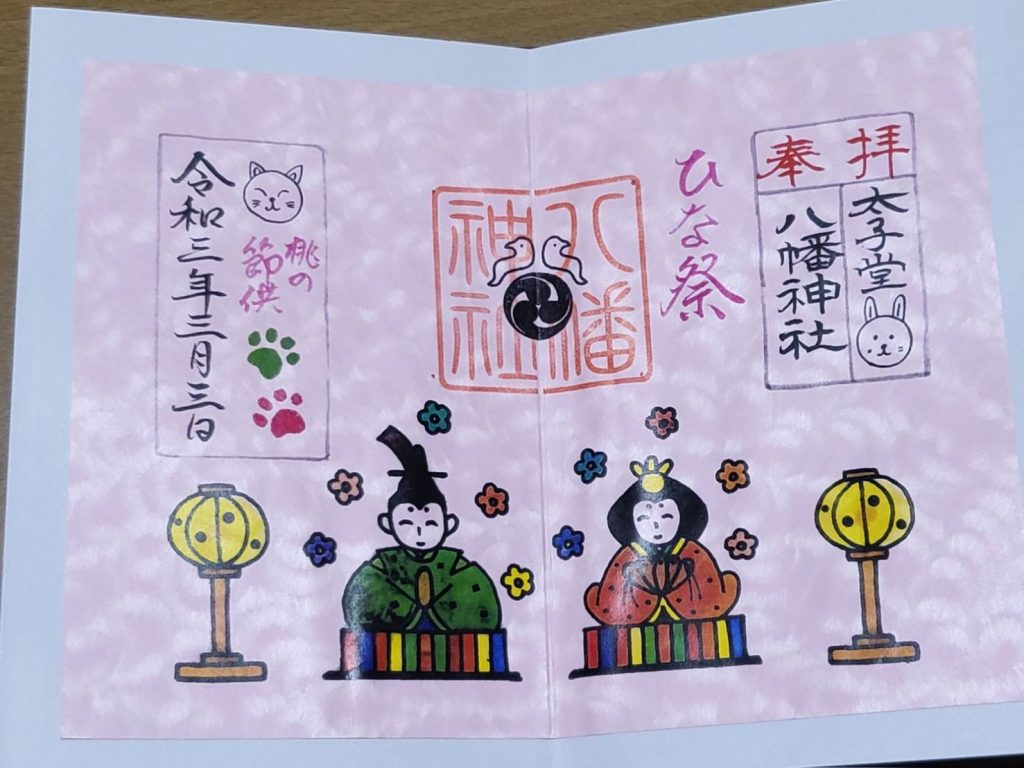 奉拝
太子堂
八幡神社
ひな祭
八幡
神社
桃の
節供
令和三年三月三日